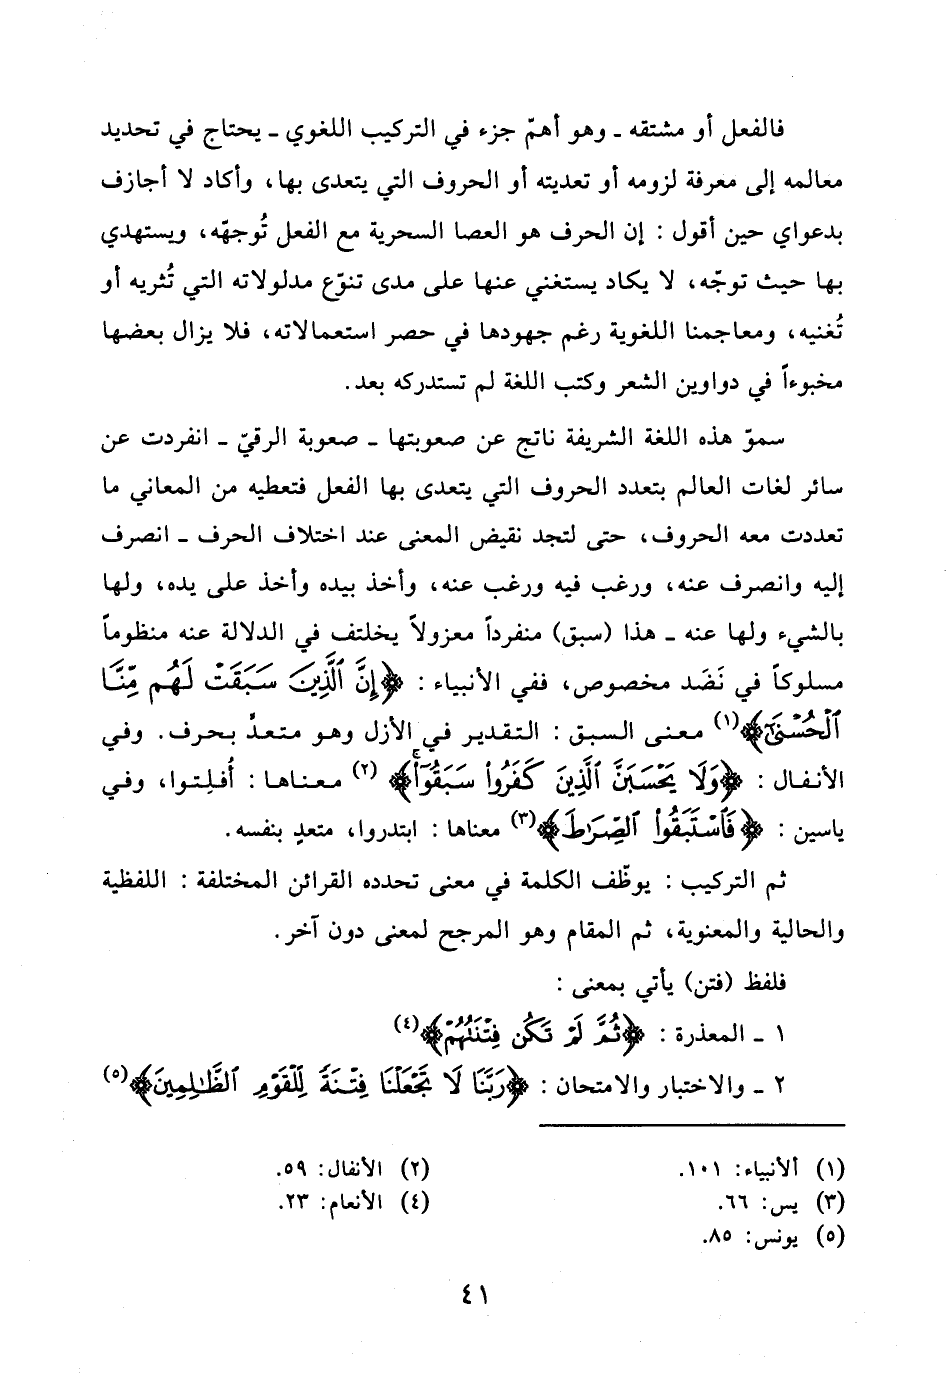 فالفعل أو مشتقه ـ وهو أهمّ جزء في التركيب اللغوي ـ يحتاج في تحديد
معالمه إلى معرفة لزومه أو تعديته أو الحروف التي يتعدى بها، وأكاد لا أجازف
بدعواي حين أقول : إن الحرف هو العصا السحرية مع الفعل تُوجهّه، ويستهدي
بها حيث توجّه، لا يكاد يستغني عنها على مدى تنوّع مدلولاته التي تُثريه أو
تُغنيه، ومعاجمنا اللغوية رغم جهودها في حصر استعمالاته، فلا يزال بعضها
مخبوءاً في دواوين الشعر وكتب اللغة لم تستدركه بعد.
سموّ هذه اللغة الشريفة ناتج عن صعوبتها ـ صعوبة الرقيّ ـ انفردت عن
سائر لغات العالم بتعدد الحروف التي يتعدى بها الفعل فتعطيه من المعاني ما
تعددت معه الحروف، حتى لتجد نقيض المعنى عند اختلاف الحرف ـ انصرف
إليه وانصرف عنه، ورغب فيه ورغب عنه، وأخذ بيده وأخذ على يده، ولها
بالشيء ولها عنه ـ هذا (سبق) منفرداً معزولاً يخلتف في الدلالة عنه منظوماً
مسلوكاً في نَضَد مخصوص، ففي الأنبياء : ﴿إِنَّ ٱلَّذِينَ سَبَقَتْ لَهُم مِّنَّا
ٱلْحُسْنَىٰٓ﴾(١) معنى السبق : التقدير في الأزل وهو متعدٍّ بحرف. وفي
الأنفال : ﴿وَلَا يَحْسَبَنَّ ٱلَّذِينَ كَفَرُوا۟ سَبَقُوٓا۟ۚ﴾ (٢) معناها : أُفلِتوا، وفي
ياسين : ﴿فَٱسْتَبَقُوا۟ ٱلصِّرَٰطَ﴾(٣) معناها : ابتدروا، متعدٍ بنفسه.
ثم التركيب : يوظّف الكلمة في معنى تحدده القرائن المختلفة : اللفظية
والحالية والمعنوية، ثم المقام وهو المرجح لمعنى دون آخر.
فلفظ (فتن) يأتي بمعنى :
١ ـ المعذرة : ﴿ثُمَّ لَمْ تَكُن فِتْنَتُهُمْ﴾(٤)
٢ ـ والاختبار والامتحان : ﴿رَبَّنَا لَا تَجْعَلْنَا فِتْنَةً لِّلْقَوْمِ ٱلظَّٰلِمِينَ﴾(٥)
(١) ألأنبياء: ١٠١. (٢) الأنفال: ٥٩.
(٣) يس: ٦٦. (٤) الأنعام: ٢٣.
(٥) يونس: ٨٥.
٤١